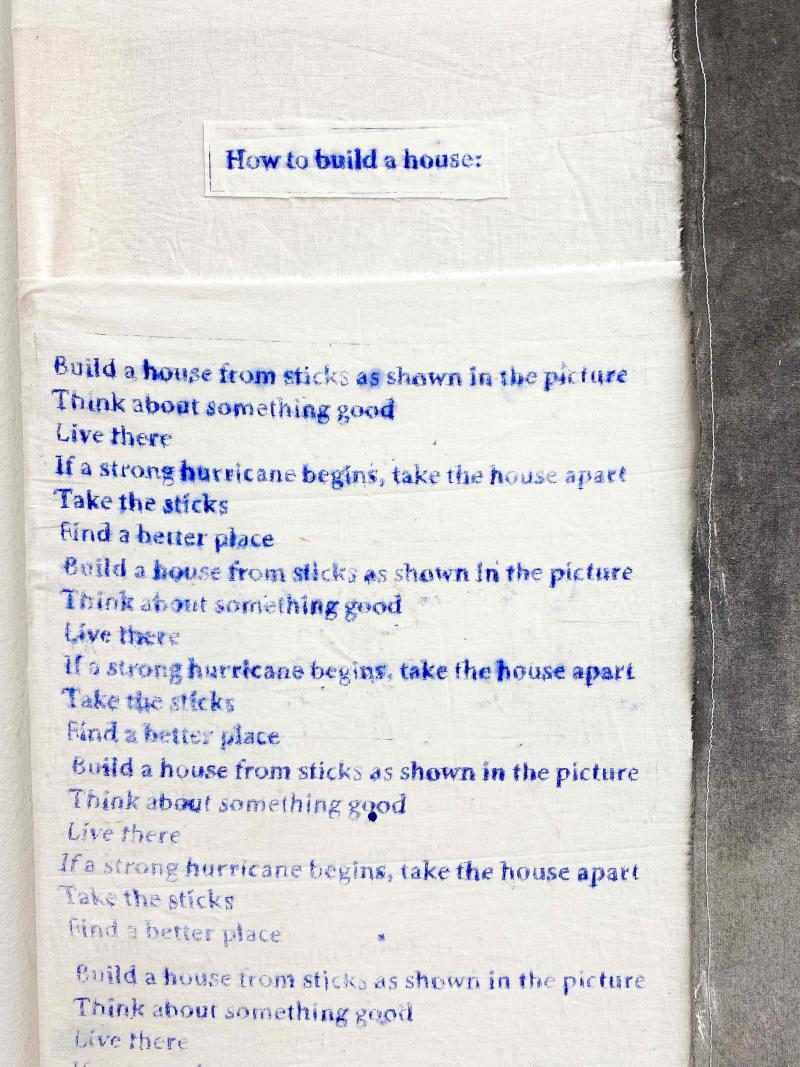 How to build a house:
Build a house from sticks as shown in the picture
Think about something good
Live there
If a strong hurricane begins, take the house apart
Take the sticks
Find a better place
Build a house from sticks as shown in the picture
Think about something good
Live there
If a strong hurricane begins, take the house apart
Take the sticks
Find a better place
Build a house from sticks as shown in the picture
Think about something good
Live there
If a strong hurricane begins, take the house apart
Take the sticks
Find a better place
Build a house from sticks as shown in the picture
Think about something good
Live there